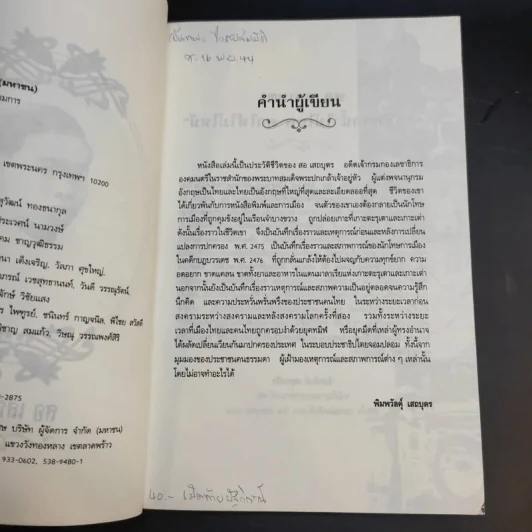 (มหาชน)
เขตพระนคร กรุงเทพฯ 10200
ทองธนากุล
นามวงษ์
ชาญวุฒิธรรม
วัลภา ศุขใหญ่,
วันดี วรรณุรัตน์,
วิชัยแสง
ไพฑูรย์, ชนินทร์ กาญจนิล, พีไชย สวัสดี
สมแก้ว, วิษณุ วรรณพงศ์สิริ
-2875
บริษัท ผู้จัดการ จำกัด (มหาชน)
แขวงวังทองหลาง เขตลาดพร้าว
933-0602, 538-9480-1
คำนำผู้เขียน
หนังสือเล่มนี้เป็นประวัติชีวิตของ สอ เสถบุตร อดีตเจ้ากรมกองเลขาธิการ
องคมนตรีในราชสำนักของพระบาทสมเด็จพระปกเกล้าเจ้าอยู่หัว ผู้แต่งพจนานุกรม
อังกฤษเป็นไทยและไทยเป็นอังกฤษที่ใหญ่ที่สุดและละเอียดลออที่สุด ชีวิตของเขา
ได้เกี่ยวพันกับการหนังสือพิมพ์และการเมือง จนตัวของเขาเองต้องกลายเป็นนักโทษ
การเมืองที่ถูกคุมขังอยู่ในเรือนจำบางขวาง ถูกปล่อยเกาะที่เกาะตะรุเตาและเกาะเต่า
ดังนั้นเรื่องราวในชีวิตเขา จึงเป็นบันทึกเรื่องราวและเหตุการณ์ก่อนและหลังการเปลี่ยน
แปลงการปกครอง พ.ศ. 2475 เป็นบันทึกเรื่องราวและสภาพการณ์ของนักโทษการเมือง
ในคดีกบฏบวรเดช พ.ศ. 2476 ที่ถูกกลั่นแกล้งให้ต้องไปผจญกับความทุกข์ยาก ความ
อดอยาก ขาดแคลน ขาดทั้งยาและอาหารในแดนมาลาเรียแห่งเกาะตะรุเตาและเกาะเต่า
นอกจากนั้นยังเป็นบันทึกเรื่องราวเหตุการณ์และสภาพความเป็นอยู่ตลอดจนความรู้สึก
นึกคิด และความประหวั่นพรั่นพรึงของประชาชนคนไทย ในระหว่างระยะเวลาก่อน
สงครามระหว่างสงครามและหลังสงครามโลกครั้งที่สอง รวมทั้งระหว่างระยะ
เวลาที่เมืองไทยและคนไทยถูกครอบงำด้วยยุคทมิฬ หรือยุคมืดที่เหล่าผู้ทรงอำนาจ
ได้ผลัดเปลี่ยนเวียนกันมาปกครองประเทศ ในระบอบประชาธิปไตยจอมปลอม ทั้งนี้จาก
มุมมองของประชาชนคนธรรมดา ผู้เฝ้ามองเหตุการณ์และสภาพการณ์ต่าง ๆ เหล่านั้น
โดยไม่อาจทำอะไรได้
พิมพวัลคุ์ เสถบุตร